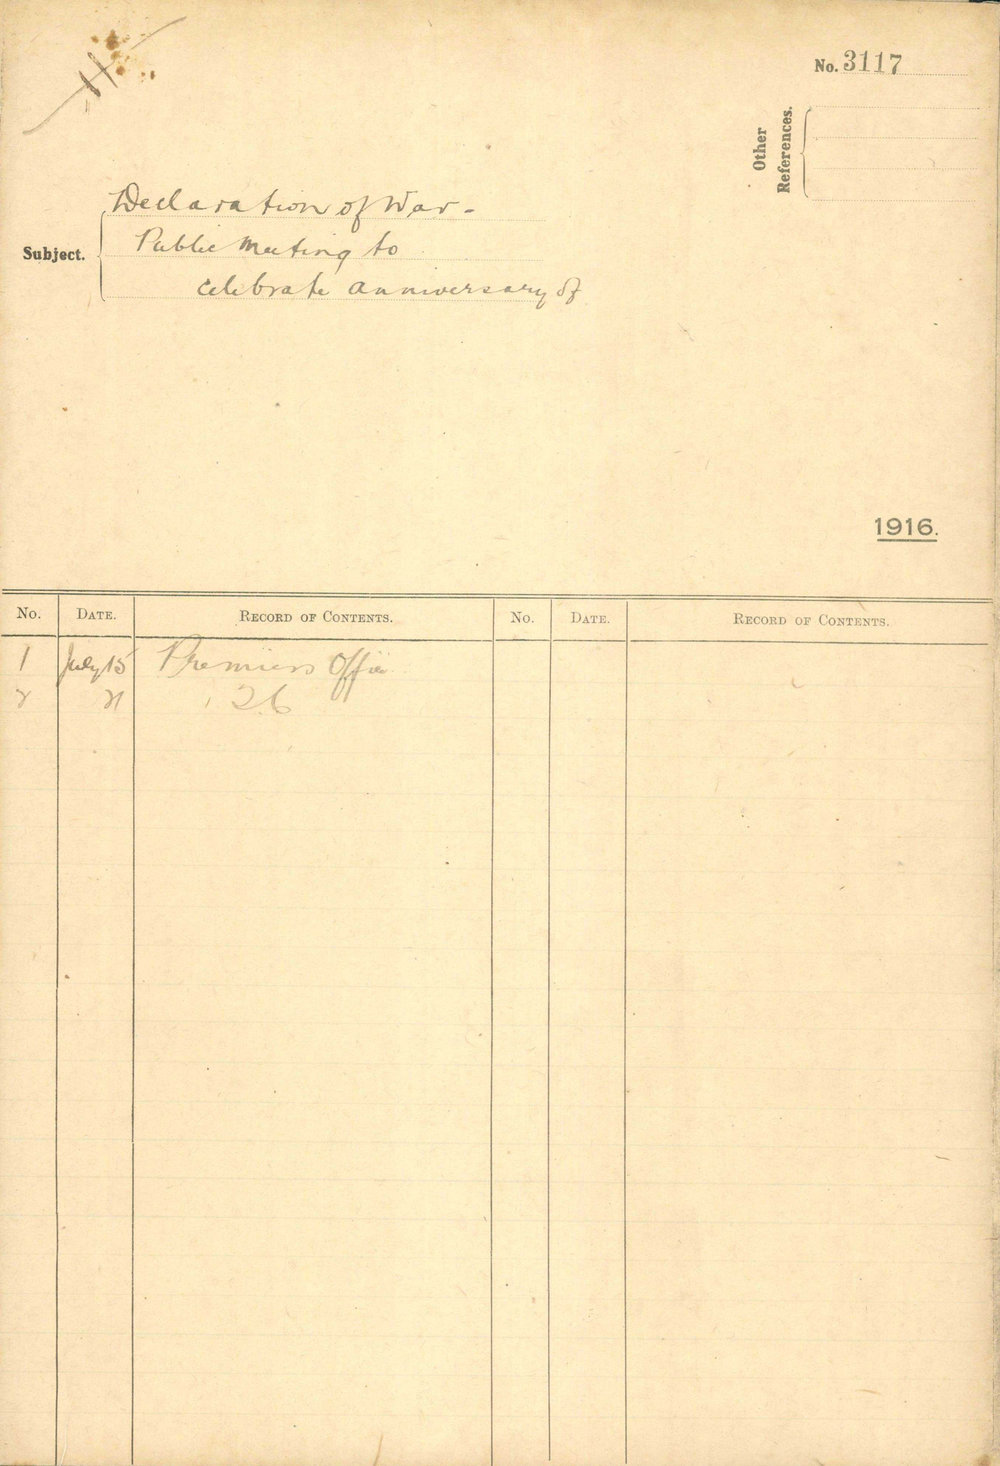 No. 3117
Other References.
Subject.
Declaration of War -
Public Meeting to
celebrate anniversary of
1916.
No. DATE. RECORD OF CONTENTS. No. DATE. RECORD OF CONTENTS.
1 July 15 Premiers Office
2 21 26